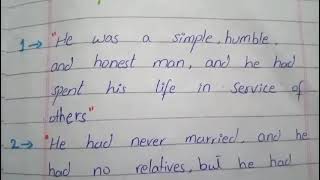 1→ "He was a simple, humble,
and honest man, and he had
spent his life in service of
others"
2→ "He had never married, and he
had no relatives, but he had